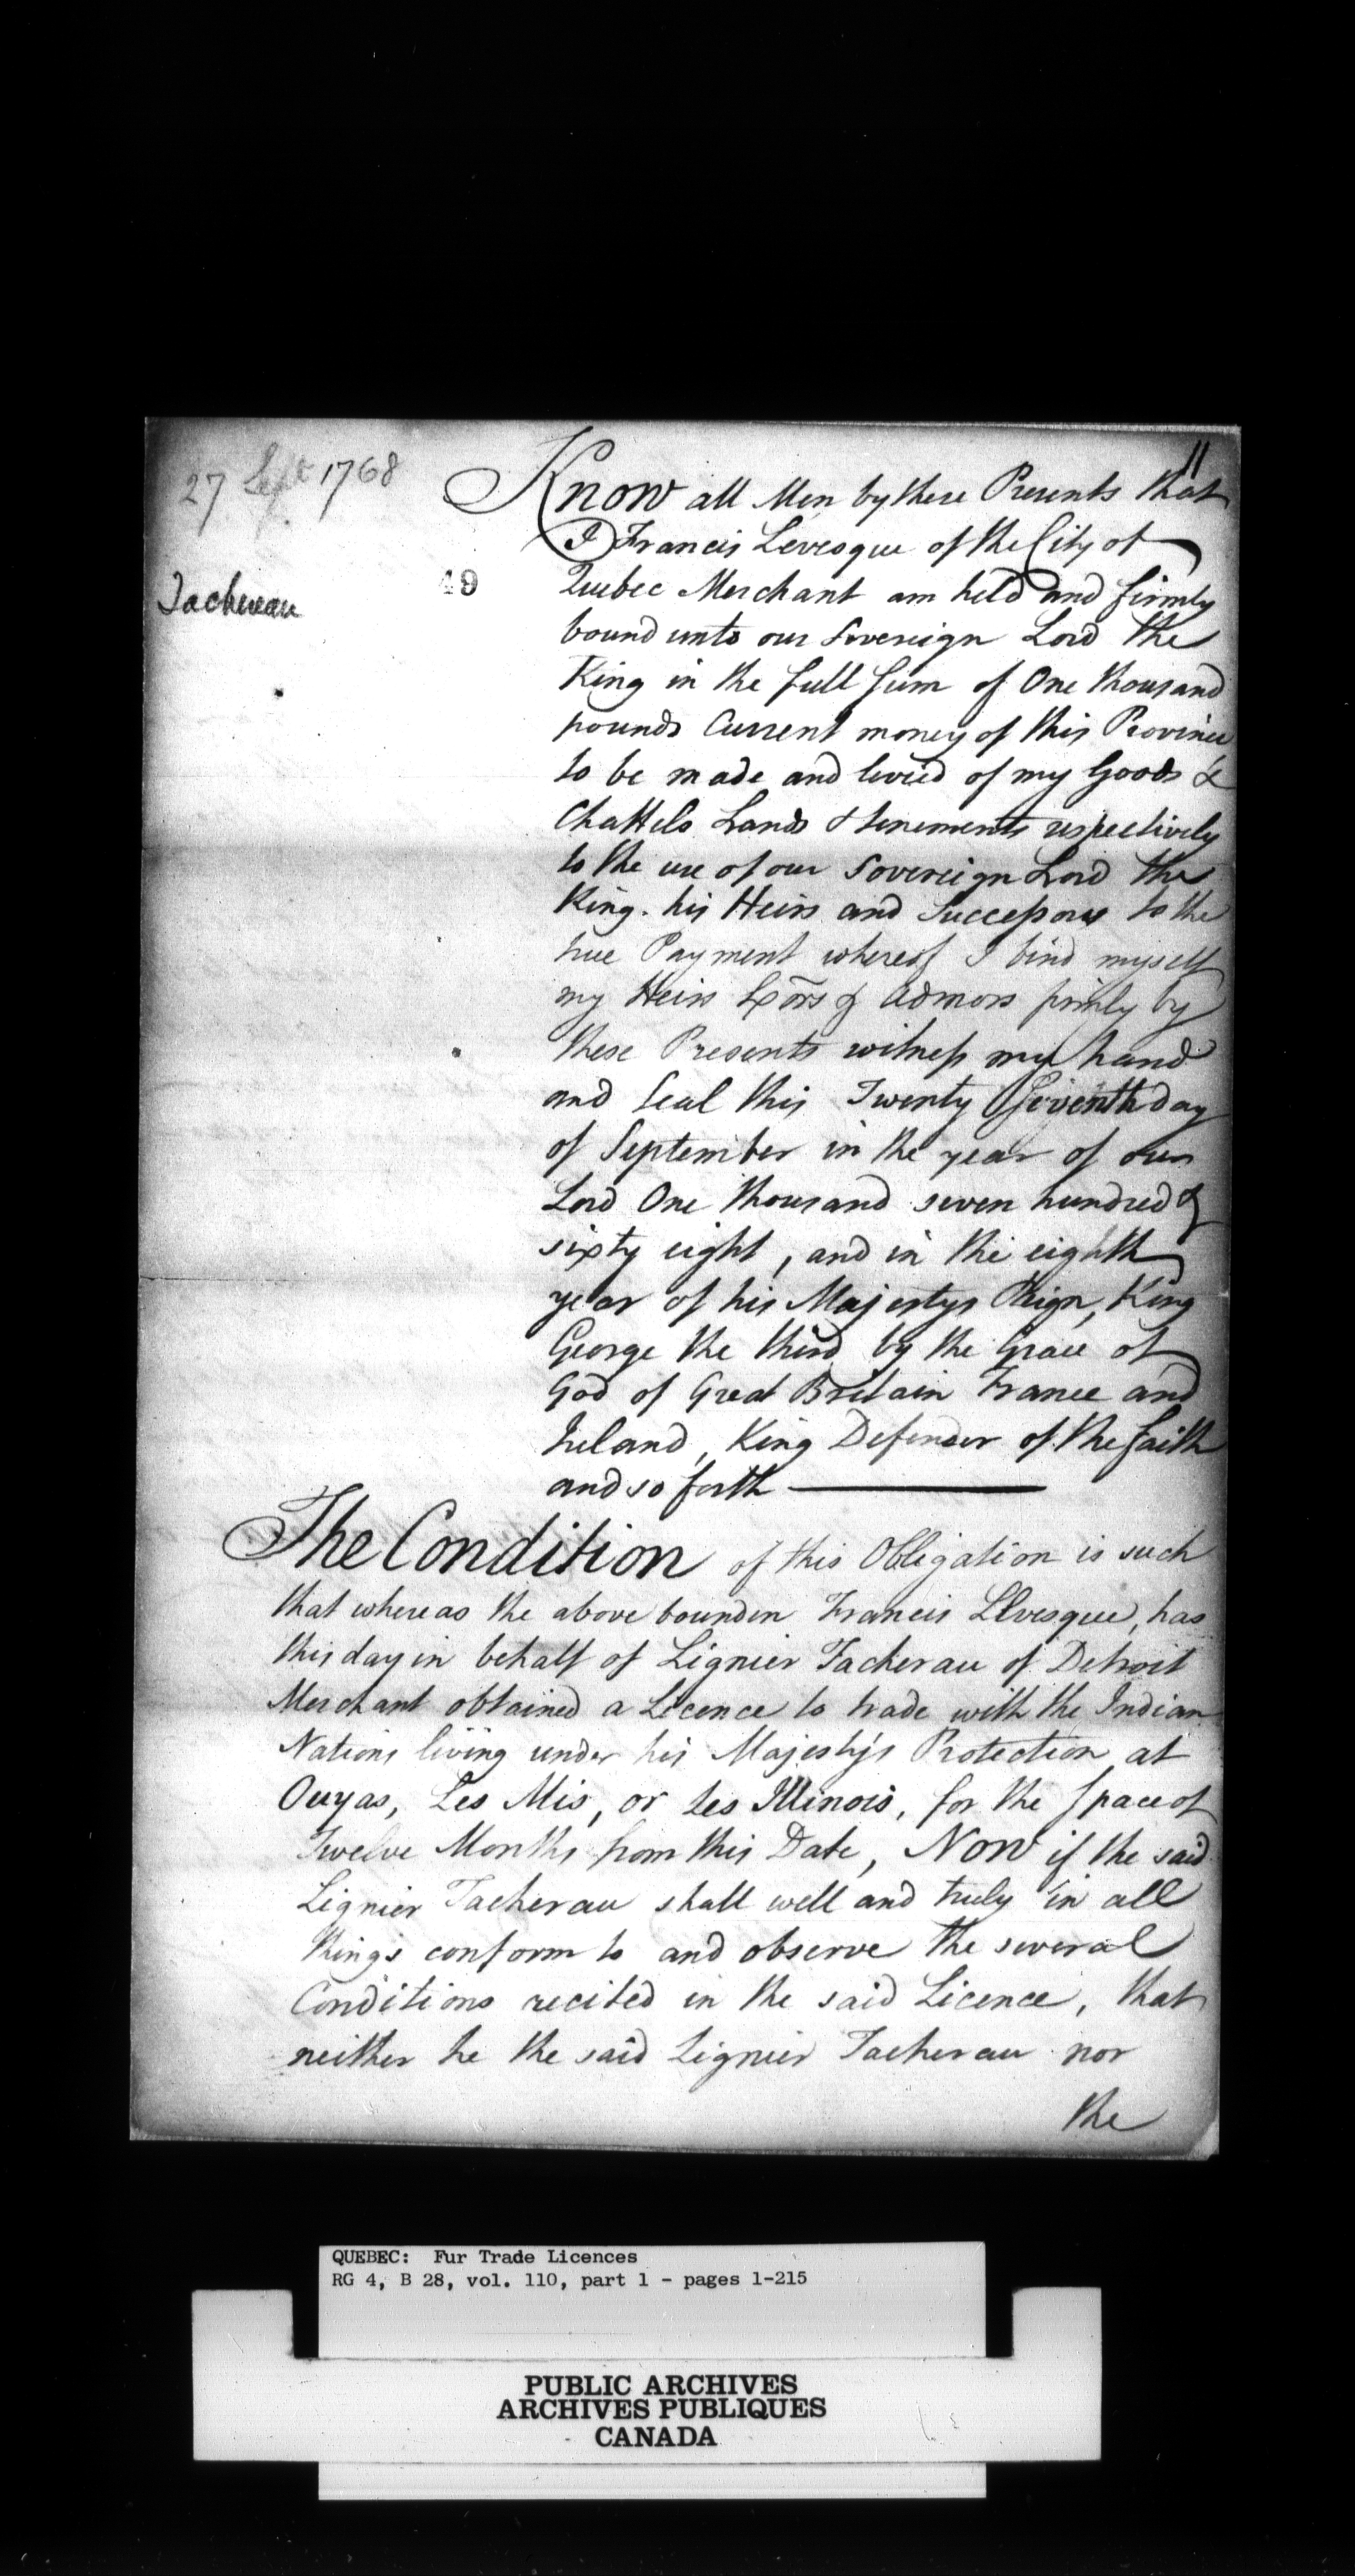 11
27 Sept 1768
Know all Men by these Presents that
I Francis Levesque of the City of
Tachereau
49
Quebec Merchant am held and firmly
bound unto our Sovereign Lord the
King in the full sum of One thousand
pounds Current money of this Province
to be made and levied of my Goods &
Chattels Lands & tenements respectively
to the use of our Sovereign Lord the
King. his Heirs and Successors to the
true Payment whereof I bind myself
my Heirs Exors & Admors firmly by
these Presents witness my hand
and Seal this Twenty Seventh day
of September in the year of our
Lord One thousand seven hundred &
sixty eight, and in the eighth
year of his Majestys Reign, King
George the third by the Grace of
God of Great Britain France and
Ireland, King Defender of the faith
and so forth
The Condition of this Obligation is such
that whereas the above bounden Francis Levesque, has
this day in behalf of Lignier Tacherau of Detroit
Merchant obtained a Licence to trade with the Indian
Nations living under his Majesty's Protection at
Ouyas, Les Mis, or Les Illinois, for the space of
Twelve Months from this Date, Now if the said
Lignier Tacherau shall well and truly in all
things conform to and observe the several
Conditions recited in the said Licence, that
neither he the said Lignier Tacherau nor
the
QUEBEC: Fur Trade Licences
RG 4, B 28, vol. 110, part 1 - pages 1-215
PUBLIC ARCHIVES
ARCHIVES PUBLIQUES
CANADA